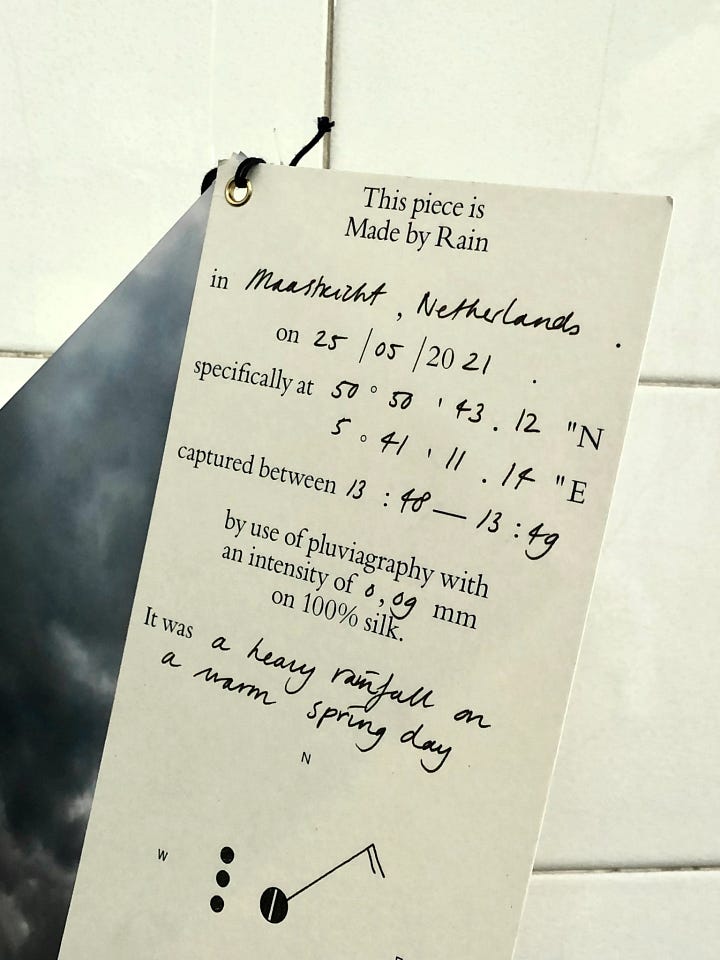 This piece is
Made by Rain
in Maastricht, Netherlands.
on 25/05/2021.
specifically at 50° 50' 43.12"N
5° 41' 11.14"E
captured between 13:48—13:49
by use of pluviagraphy with
an intensity of 0,09 mm
on 100% silk.
It was a heavy rainfall on
a warm spring day
N
W